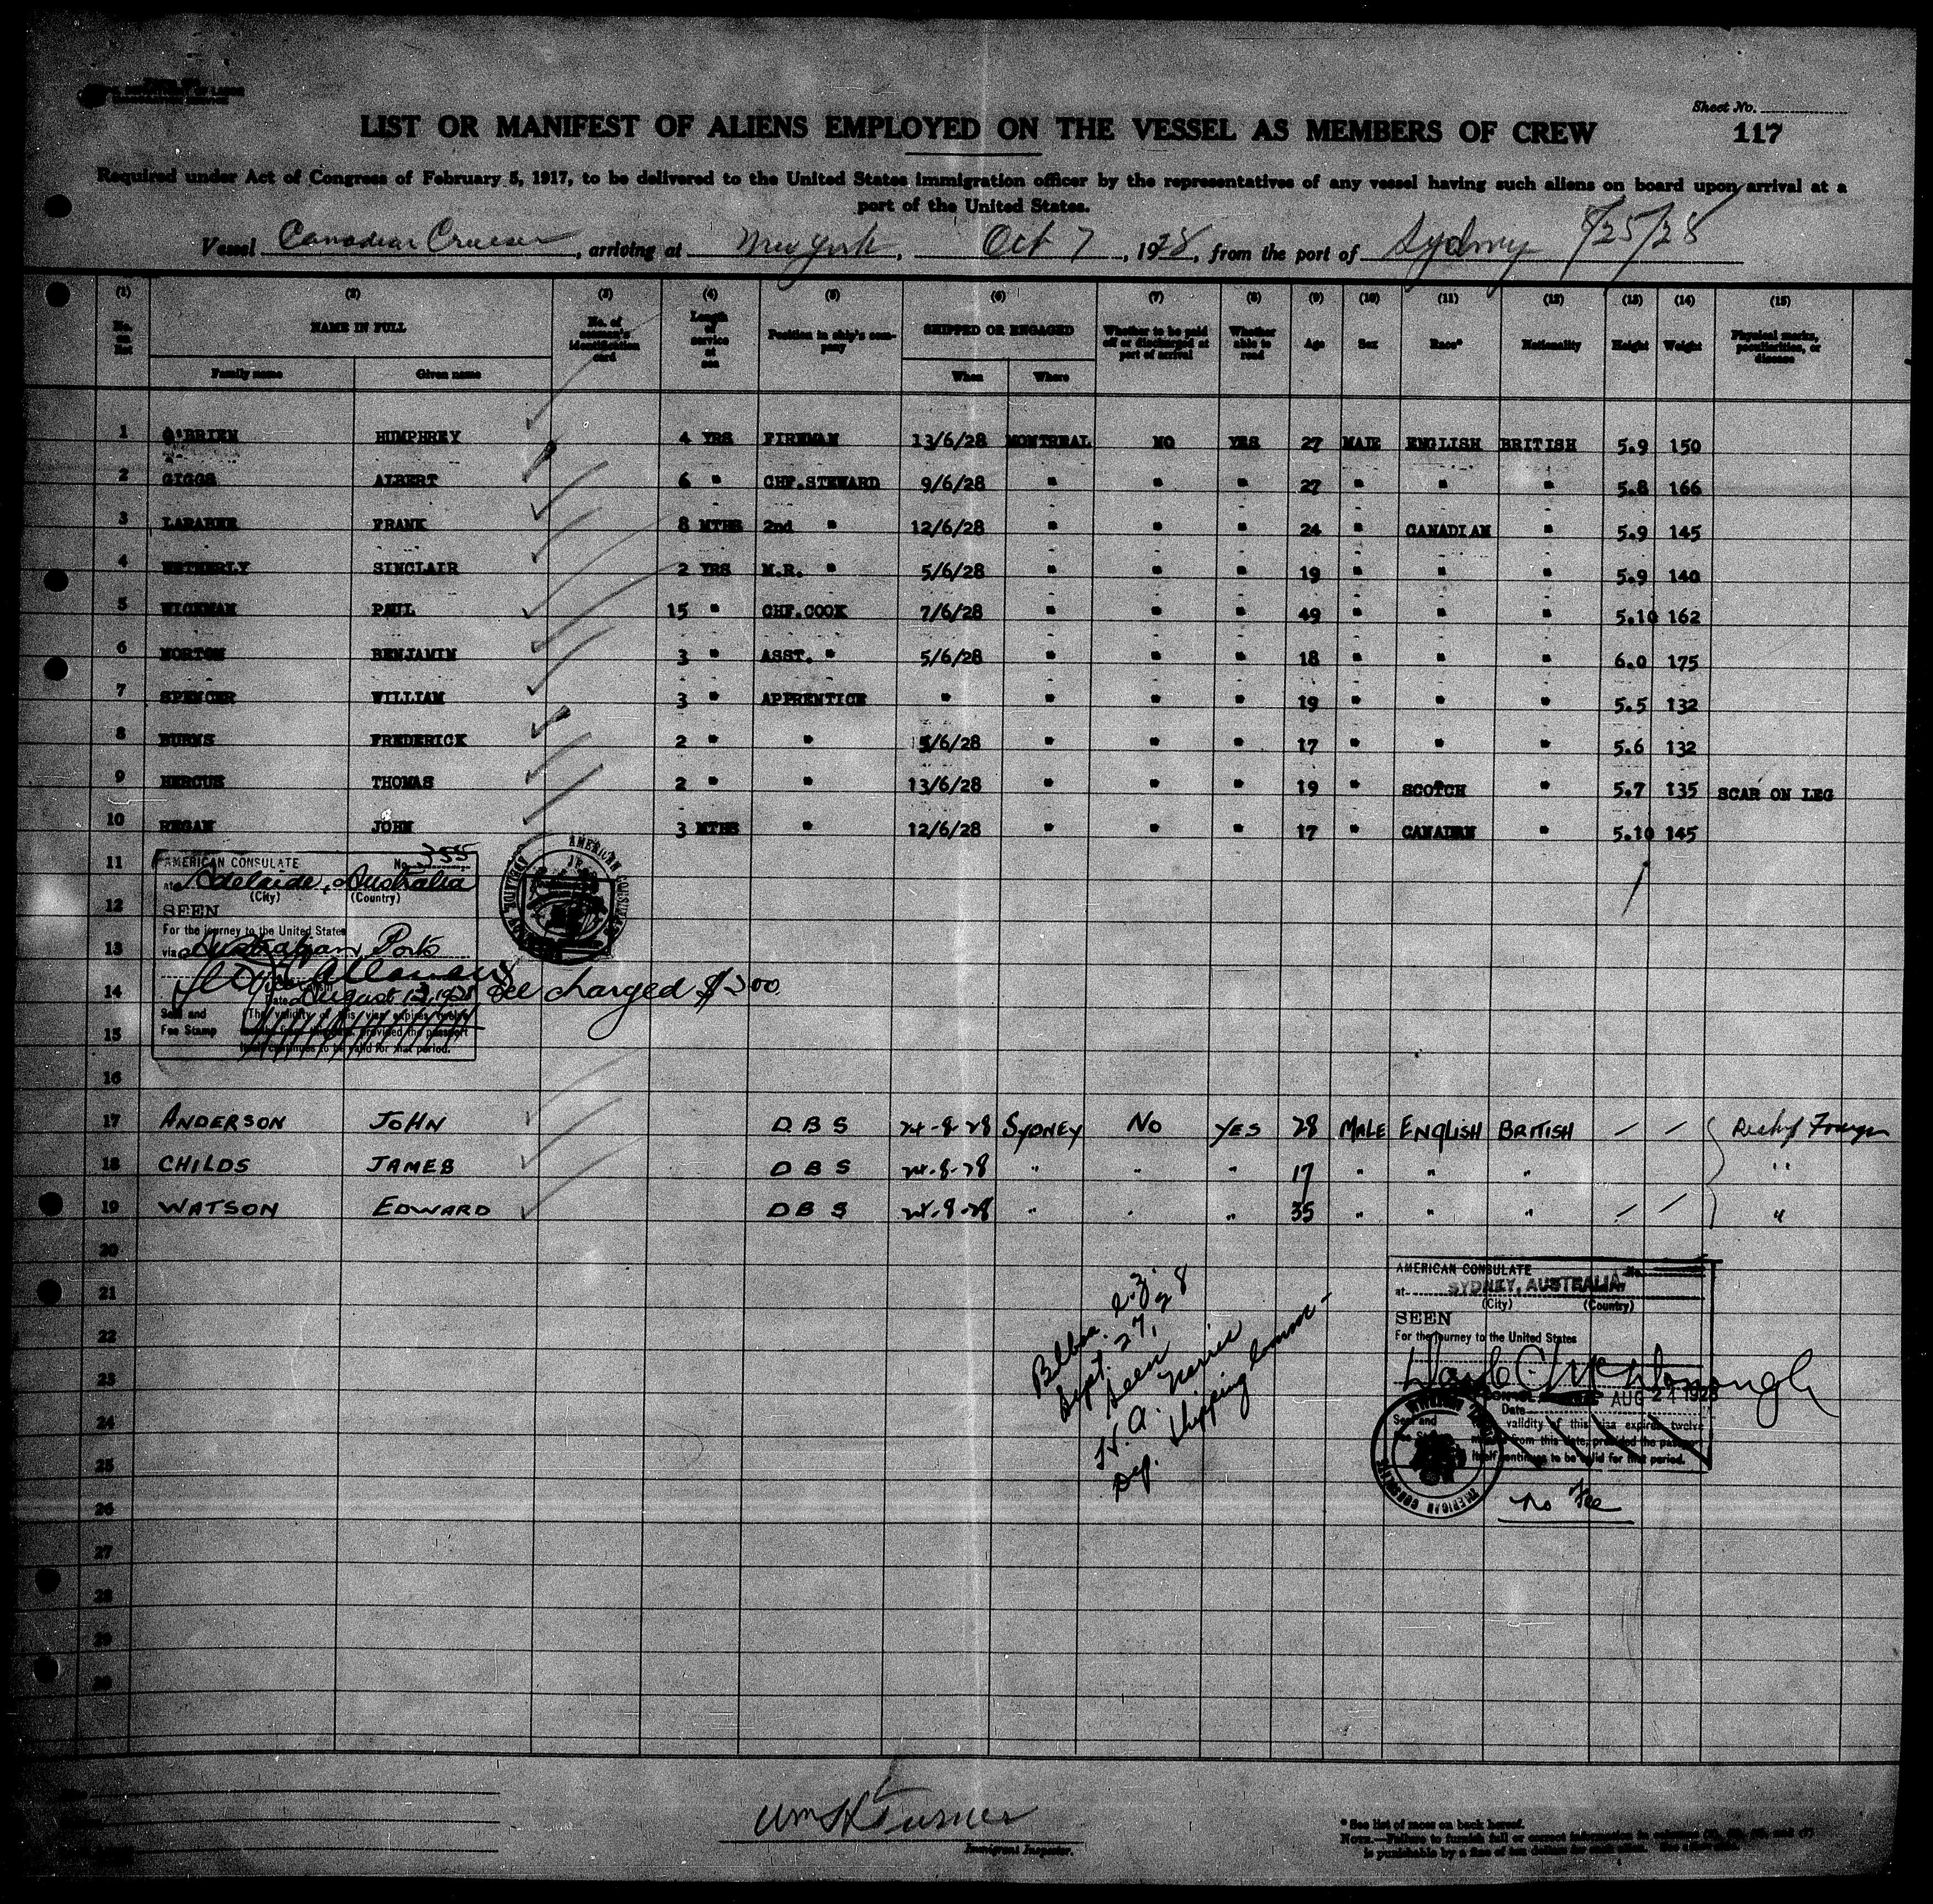 Sheet No.
117
LIST OR MANIFEST OF ALIENS EMPLOYED ON THE VESSEL AS MEMBERS OF CREW
Required under Act of Congress of February 5, 1917, to be delivered to the United States immigration officer by the representatives of any vessel having such aliens on board upon arrival at a
port of the United States.
Vessel Canadian Cruiser, arriving at New York, Oct 7, 1928, from the port of Sydney 8/25/28
(1) (2) (3) (4) (5) (6) (7) (8) (9) (10) (11) (12) (13) (14) (15)
No. on list NAME IN FULL No. of seaman's identification card Length of service at sea Position in ship's company SHIPPED OR ENGAGED Whether to be paid off or discharged at port of arrival Whether able to read Age Sex Race* Nationality Height Weight Physical marks, peculiarities, or disease
Family name Given name When Where
1 O'BRIEN HUMPHREY 4 YRS FIREMAN 13/6/28 MONTREAL NO YES 27 MALE ENGLISH BRITISH 5.9 150
2 GIGGS ALBERT 6 " CHF.STEWARD 9/6/28 " " " 27 " " " 5.8 166
3 LARABEE FRANK 8 MTHS 2nd " 12/6/28 " " " 24 " CANADIAN " 5.9 145
4 WETHERLY SINCLAIR 2 YRS M.R. " 5/6/28 " " " 19 " " " 5.9 140
5 WICKMAN PAUL 15 " CHF.COOK 7/6/28 " " " 49 " " " 5.10 162
6 NORTON BENJAMIN 3 " ASST. " 5/6/28 " " " 18 " " " 6.0 175
7 SPENCER WILLIAM 3 " APPRENTICE " " " " 19 " " " 5.5 132
8 BURNS FREDERICK 2 " " 5/6/28 " " " 17 " " " 5.6 132
9 HERCUS THOMAS 2 " " 13/6/28 " " " 19 " SCOTCH " 5.7 135 SCAR ON LEG
10 REGAN JOHN 3 MTHS " 12/6/28 " " " 17 " CANADIAN " 5.10 145
11
AMERICAN CONSULATE No. 355
at Adelaide, Australia
(City) (Country)
12
SEEN
For the journey to the United States
13
via Australian Ports
14
Date August 13, 1928 Fee charged $2.00
Seal and Fee Stamp
(The validity of this visa expires twelve
months from this date, provided the passport
itself continues to be valid for that period.
15
AMERICAN CONSULATE
ADELAIDE
16
17 ANDERSON JOHN D B S 24-8-28 SYDNEY NO YES 28 MALE ENGLISH BRITISH Reship Foreign
18 CHILDS JAMES D B S 24-8-28 " " " 17 " " " "
19 WATSON EDWARD D B S 24-8-28 " " " 35 " " " "
20
21
22
23
24
25
26
27
28
29
30
Balboa. C.Z.
Sept. 27, 28
Seen
H. A.
Dep. Shipping Comm-
AMERICAN CONSULATE No.
at SYDNEY, AUSTRALIA
(City) (Country)
SEEN
For the journey to the United States
Date AUG 24 1928
Seal and
validity of this visa expires twelve
months from this date, provided the passport
itself continues to be valid for that period.
AMERICAN CONSULATE
No Fee
Wm H Turner
Immigrant Inspector.
* See list of races on back hereof.
NOTE.—Failure to furnish full or correct information in columns
is punishable by a fine of ten dollars for each alien.